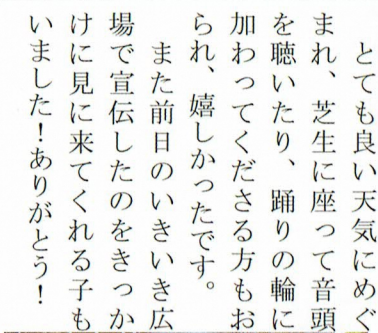 とても良い天気にめぐ
まれ、芝生に座って音頭
を聴いたり、踊りの輪に
加わってくださる方もお
られ、嬉しかったです。
また前日のいきいき広
場で宣伝したのをきっか
けに見に来てくれる子も
いました！ありがとう！